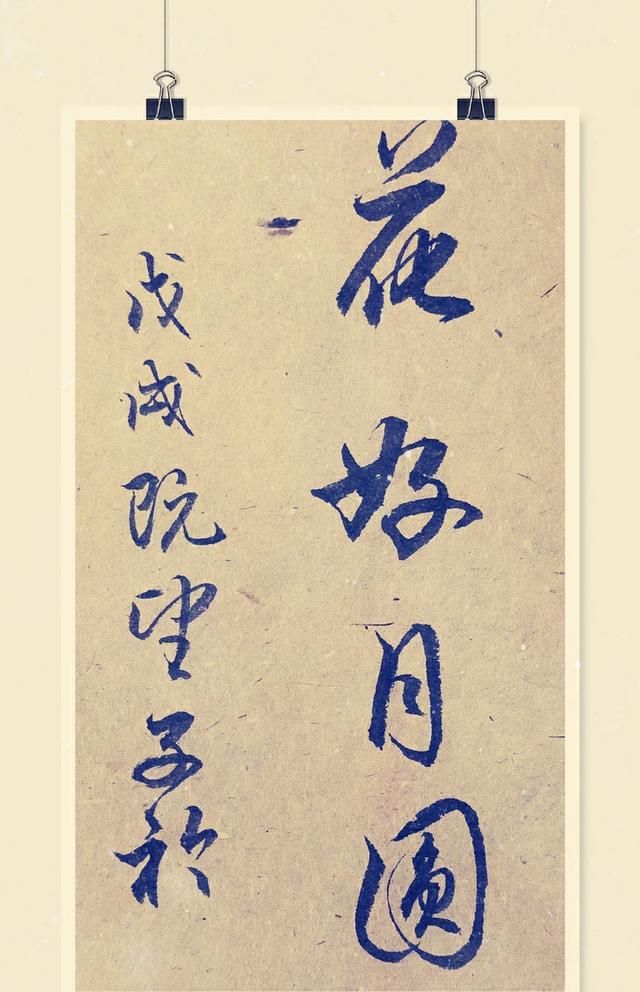 花好月圓
戊戌既望子衿